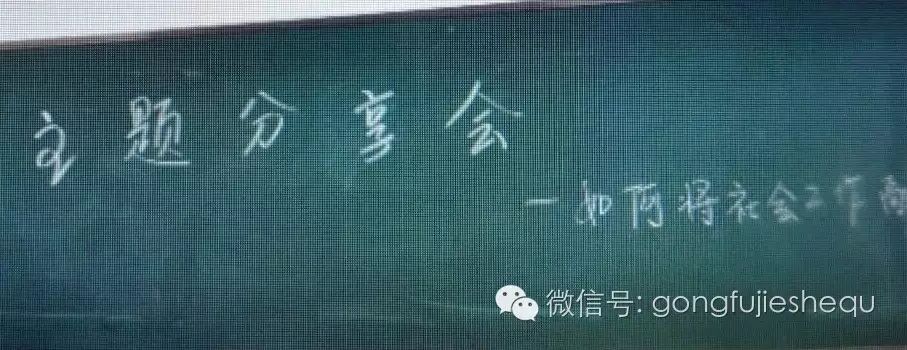 主题分享会
一如何将社会工作
微信号: gongfujieshequ